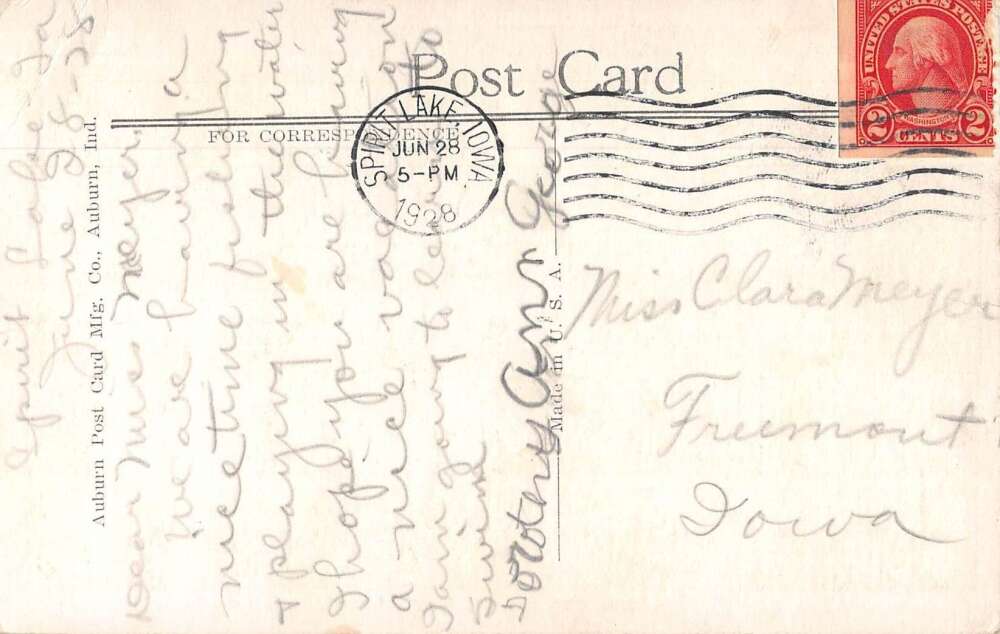 Post Card
FOR CORRESPONDENCE
SPIRIT LAKE, IOWA
JUN 28
5-PM
1928
UNITED STATES POSTAGE
WASHINGTON
2 CENTS 2
Auburn Post Card Mfg. Co., Auburn, Ind.
Made in U. S. A.
Spirit Lake Ia
June 28-28
Dear Miss Meyer:
We are having a
nice time fishing
& playing in the water
I hope you are having
a nice vacation
I am going to learn to
swim
Dorothy Ann George
Miss Clara Meyer
Freemont
Iowa